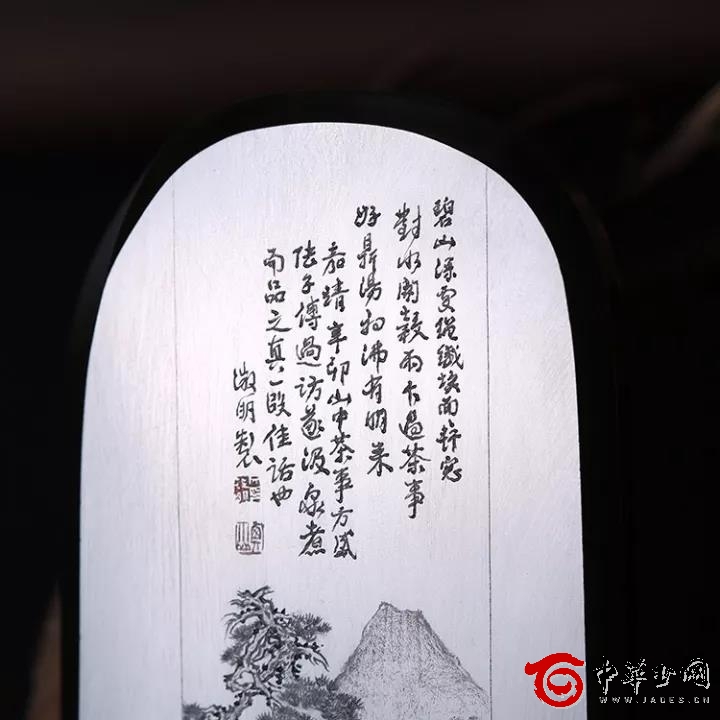 碧山深處絕纖埃面軒窗
對水開穀雨乍過茶事
好鼎湯初沸有朋來
嘉靖辛卯山中茶事方盛
陸子傅過訪遂汲泉煮
而品之真一段佳話也
徵明製
中华玉网
WWW.JADES.CN